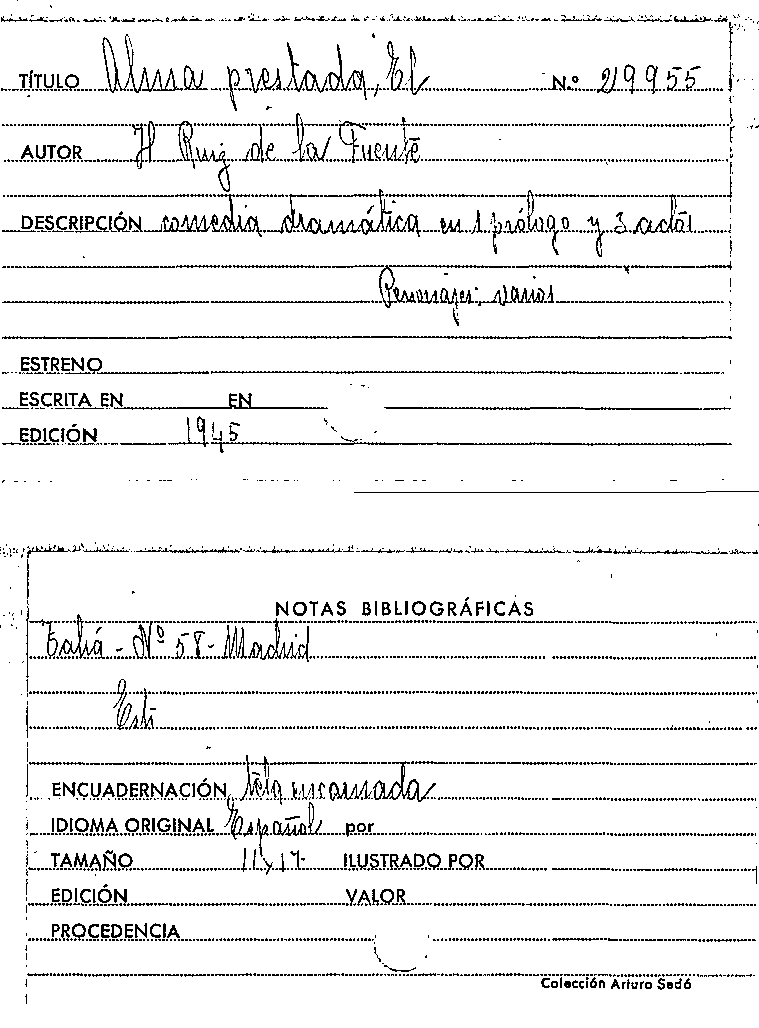 TÍTULO Alma prestada, El N.º 29955
AUTOR H Ruiz de la Fuente
DESCRIPCIÓN comedia dramática en 1 prólogo y 3 actos
Personajes: varios
ESTRENO
ESCRITA EN EN
EDICIÓN 1945
NOTAS BIBLIOGRÁFICAS
Talía - Nº 58 - Madrid
ENCUADERNACIÓN tela encarnada
IDIOMA ORIGINAL Español por
TAMAÑO 11x17 ILUSTRADO POR
EDICIÓN VALOR
PROCEDENCIA
Colección Arturo Sedó